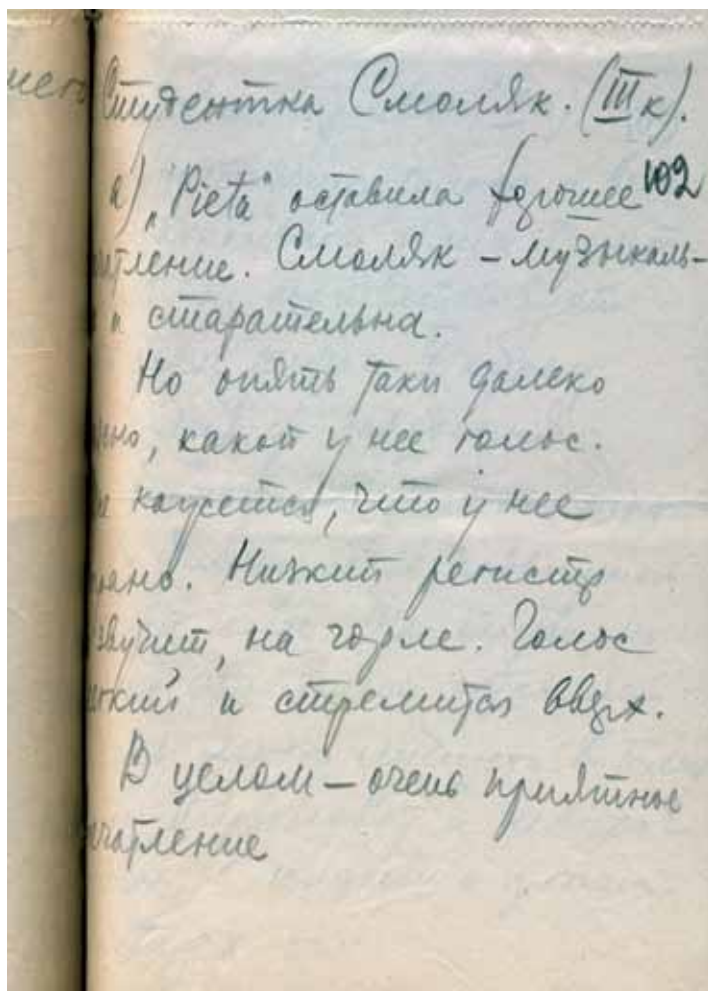 него
Студентка Смоляк. (III к).
102
а) „Pieta“ оставила хорошее
чатление. Смоляк – музыкаль-
и старательна.
Но опять таки далеко
но, какой у нее голос.
кажется, что у нее
ано. Низкий регистр
звучит, на горле. Голос
гкий и стремится вверх.
В целом – очень приятное
чатление